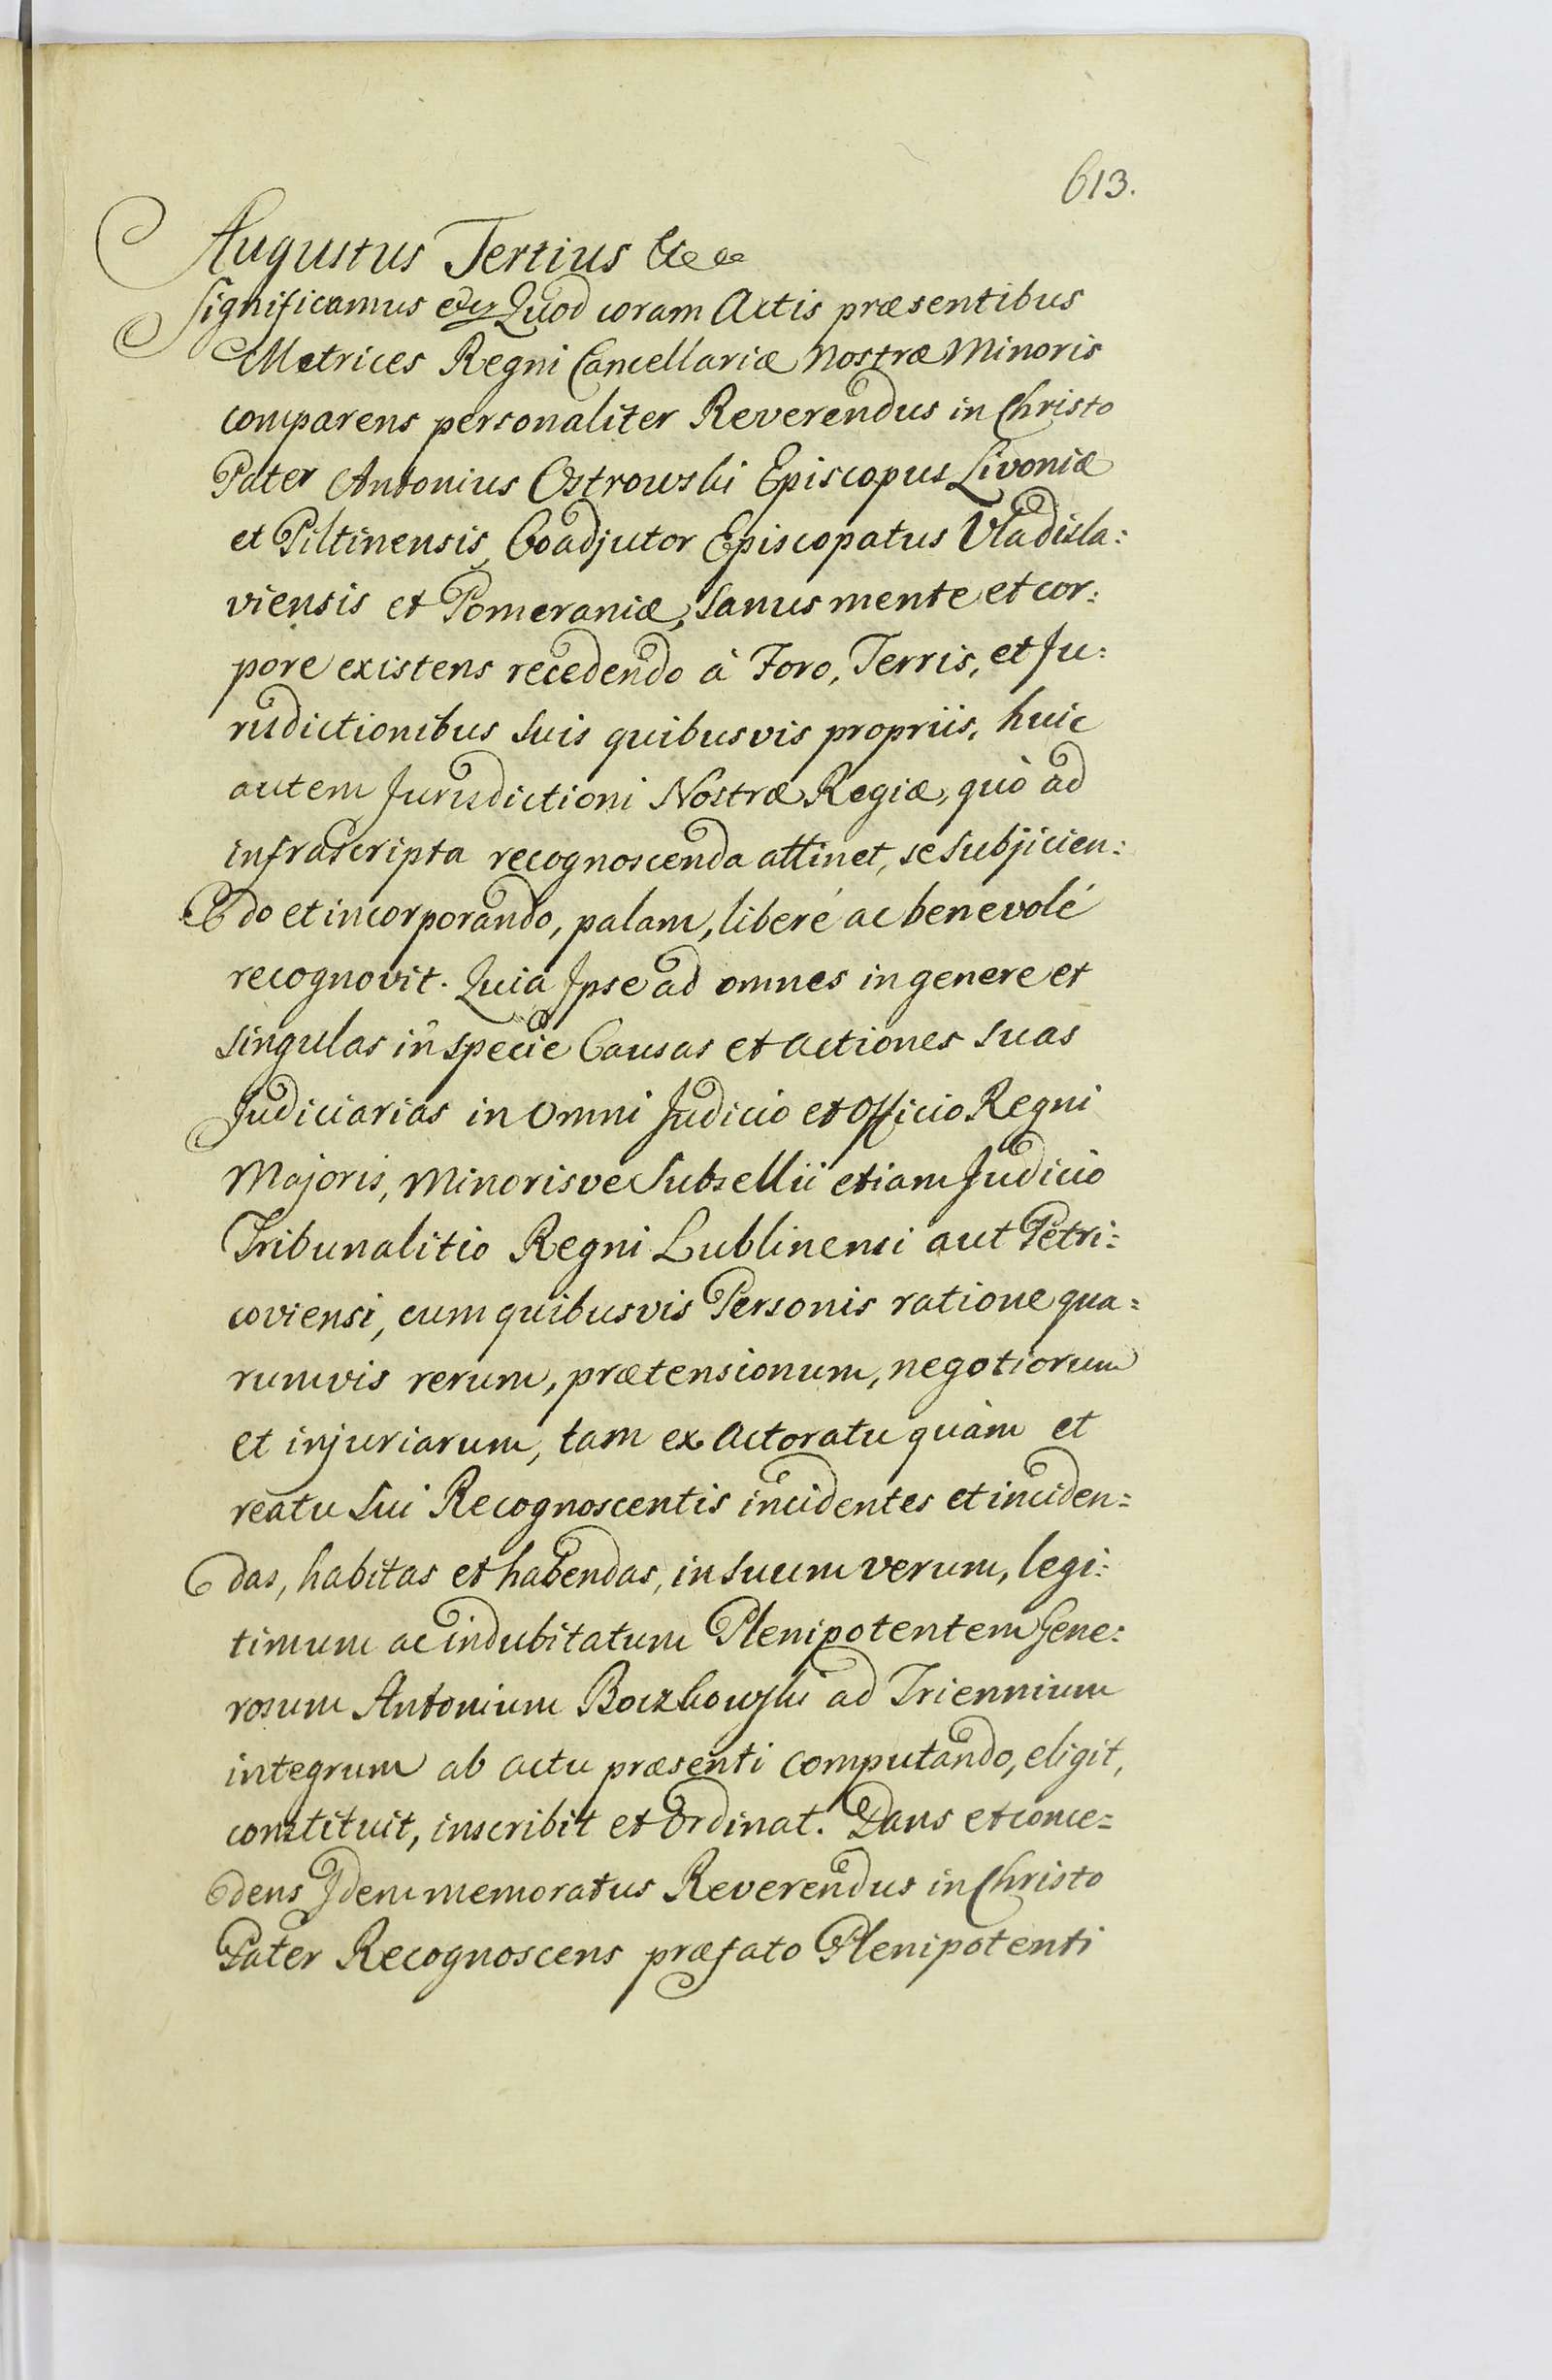 613.
Augustus Tertius &c
Significamus &c Quod coram Actis præsentibus
Metrices Regni Cancellariæ Nostræ Minoris
comparens personaliter Reverendus in Christo
Pater Antonius Ostrowski Episcopus Livoniæ
et Piltinensis, Coadjutor Episcopatus Vladisla:
viensis et Pomeraniæ, Sanus mente et cor:
pore existens recedendo à Foro, Terris, et Ju:
risdictionibus Suis quibusvis propriis, huic
autem Jurisdictioni Nostræ Regiæ, quò ad
infrascripta recognoscenda attinet, se Subjicien:
do et incorporando, palam, liberé ac benevolé
recognovit. Quia Ipse ad omnes in genere et
Singulas in Specie Causas et Actiones Suas
Judiciarias in Omni Judicio et Officio Regni
Majoris, Minorisve Subsellii etiam Judicio
Tribunalitio Regni Lublinensi aut Petri:
coviensi, cum quibusvis Personis ratione qua=
rumvis rerum, prætensionum, negotiorum
et injuriarum, tam ex Actoratu quàm et
reatu Sui Recognoscentis incidentes et inciden=
das, habitas et habendas, in Suum verum, legi:
timum ac indubitatum Plenipotentem Gene:
rosum Antonium Boczkowski ad Triennium
integrum ab actu præsenti Computando, eligit,
constituit, inscribit et Ordinat. Dans et conce=
dens Idem memoratus Reverendus in Christo
Pater Recognoscens præfato Plenipotenti